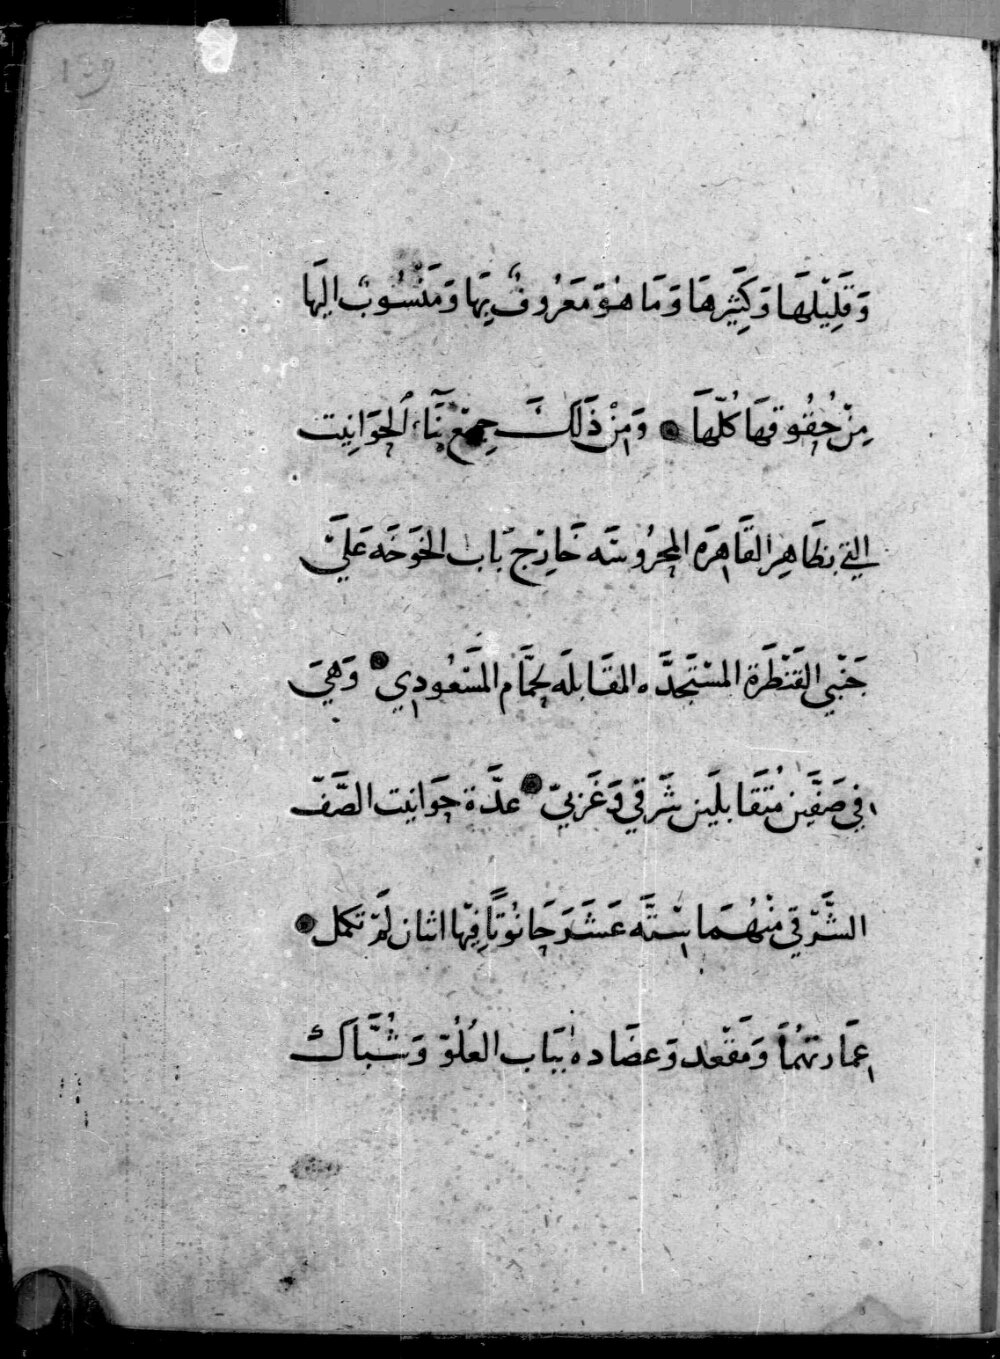 وَقَلِيْلِهَا وَكَثِيْرِهَا وَمَا هُوَ مَعْرُوفٌ بِهَا وَمَنْسُوبٌ اليهَا
مِنْ حُقُوقهَا كُلّهَا وَمِنْ ذَلِكَ جميْع بنَاء الحوَانِيت
التي بظَاهِر القَاهِرَه المحرُوسَه خَارِج بَاب الخوَخَه عَلَى
جَنْبي القَنْطَرَة المسْتَجدَّه المقَابلَه لحمَّام المَسْعُودي وَهيَ
في صَفَّيْن مُتقَابلَين شَرقي وَغَربيّ عدَّة حوَانيت الصَّفّ
الشَّرْقي منْهُمَا ستَّه عَشَرَ حَانُوتًا فيْهَا اثنان لَمْ تكمل
عمَارتهُمَا وَمَقْعَد وَعضَاده بَبَاب العُلُوّ وَشُبَّاك